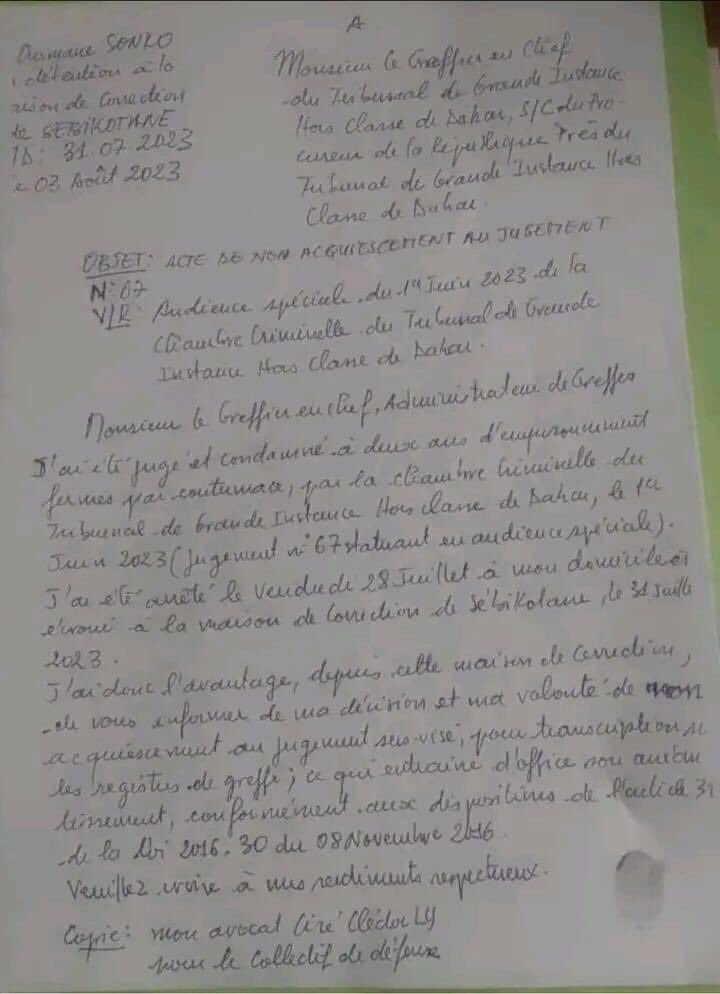 Ousmane SONKO
détention à la
aison de Correction
de SEBIKOTANE
MD: 31.07.2023
Le 03 Août 2023
A
Monsieur le Greffier en Chef
du Tribunal de Grande Instance
Hors Classe de Dakar, S/C du Pro-
cureur de la République Près du
Tribunal de Grande Instance Hors
Classe de Dakar.
OBJET: ACTE DE NON ACQUIESCEMENT AU JUGEMENT
N°67
V/R: Audience spéciale du 1er Juin 2023 de la
Chambre Criminelle du Tribunal de Grande
Instance Hors Classe de Dakar.
Monsieur le Greffier en chef, Administrateur de Greffes
J'ai été jugé et condamné à deux ans d'emprisonnement
fermes par contumace, par la chambre Criminelle du
Tribunal de Grande Instance Hors classe de Dakar, le 1er
Juin 2023 (Jugement n°67 statuant en audience spéciale).
J'ai été arrêté le Vendredi 28 Juillet à mon domicile et
écroué à la maison de Correction de Sébikotane, le 31 Juillet
2023.
J'ai donc l'avantage, depuis cette maison de Correction,
de vous informer de ma décision et ma volonté de non
acquiescement au jugement sus-visé, pour transcription su
les registres de greffe; ce qui entraine d'office son anéan
tissement, conformément aux dispositions de l'article 31
de la Loi 2016.30 du 08 Novembre 2016.
Veuillez croire à mes sentiments respectueux.
Copie: mon avocat Ciré Clédor LY
pour le Collectif de défense